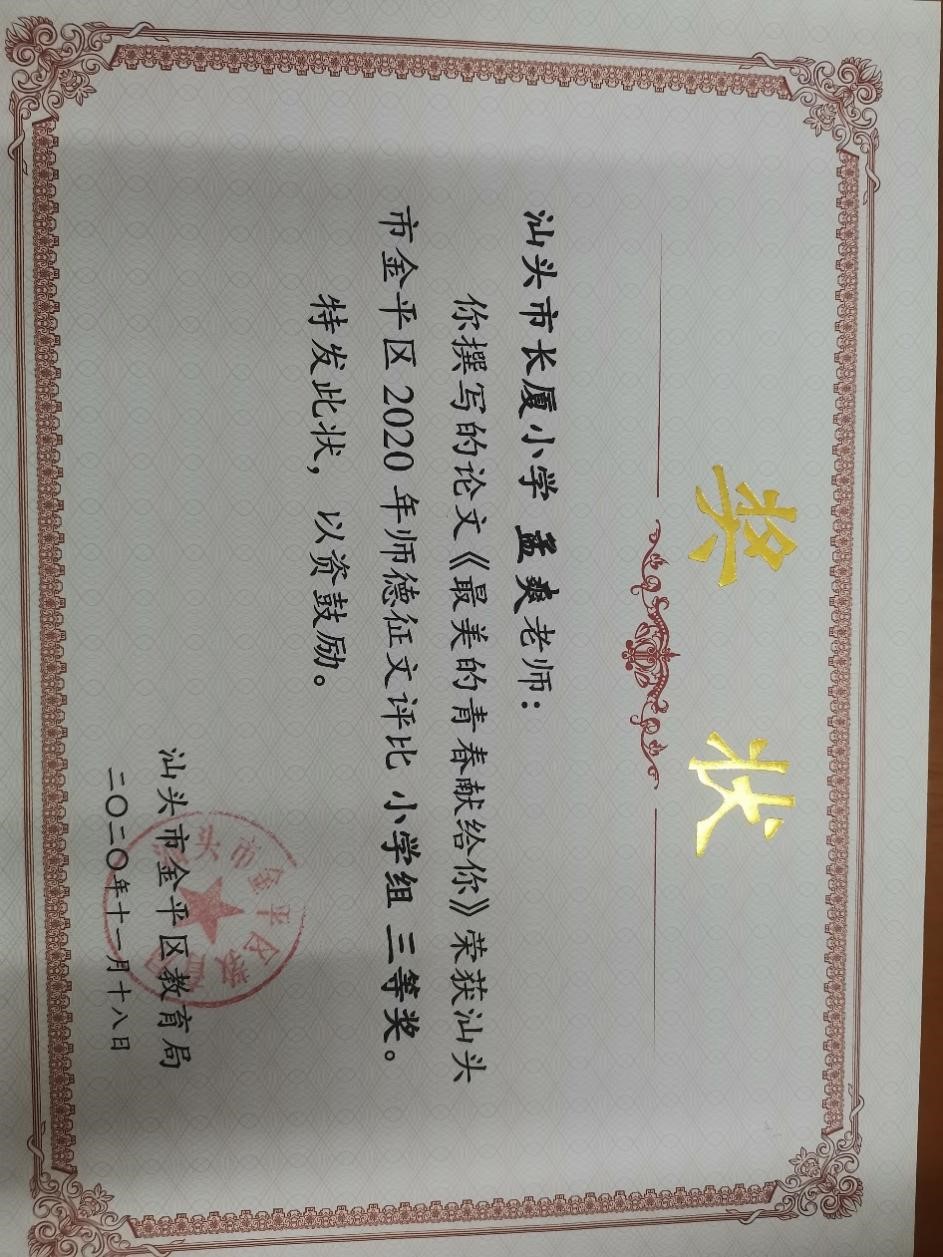 奖状
汕头市长厦小学 孟爽老师：
你撰写的论文《最美的青春献给你》荣获汕头
市金平区2020年师德征文评比 小学组 三等奖。
特发此状，以资鼓励。
汕头市金平区教育局
二〇二〇年十一月十八日
汕头市金平区教育局